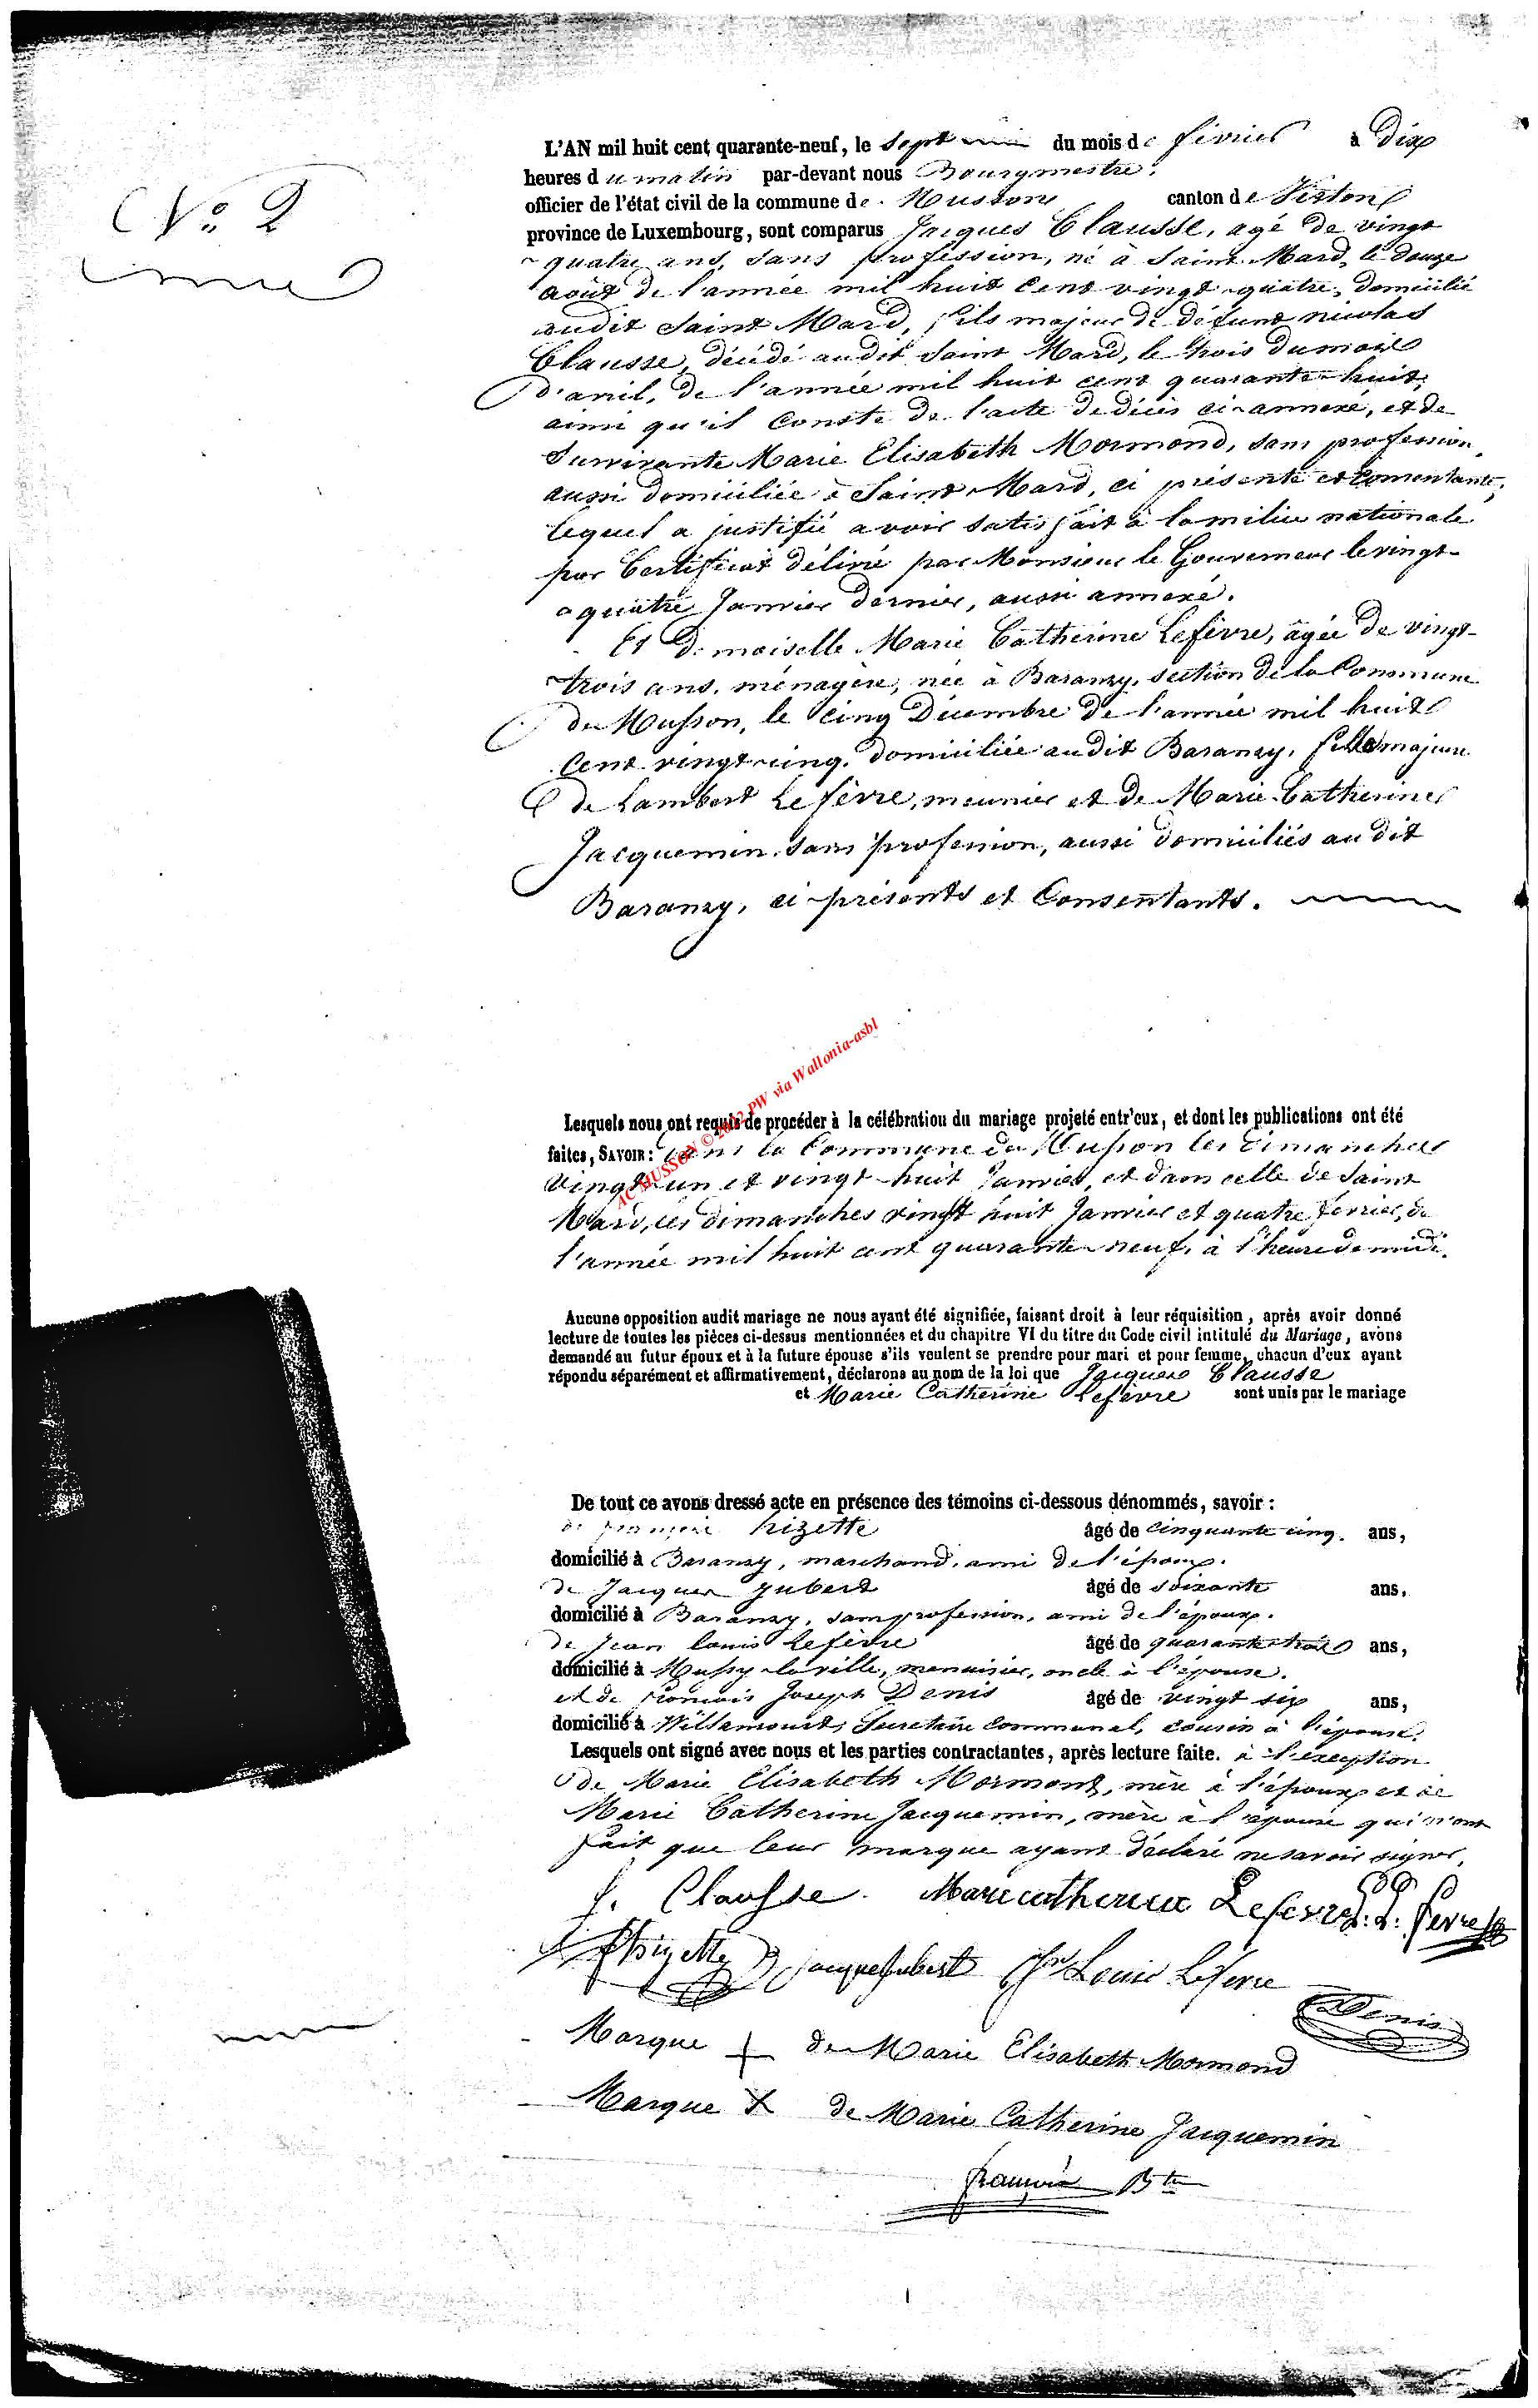 N° 2
L'AN mil huit cent quarante-neuf, le sept du mois de février à Dix
heures du matin par-devant nous Bourgmestre,
officier de l'état civil de la commune de Musson canton de Virton
province de Luxembourg, sont comparus Jacques Clausse, agé de vingt
quatre ans, sans profession, né à Saint Mard, le douze
août de l'année mil huit cent vingt-quatre, domicilié
audit Saint Mard, fils majeur de défunt nicolas
Clausse, décédé audit Saint Mard, le trois du mois
d'avril, de l'année mil huit cent quarante-huit,
ainsi qu'il conste de l'acte de décès ci-annexé, et de
survivante Marie Elisabeth Mormond, sans profession,
aussi domiciliée à Saint Mard, ci présente et consentante;
lequel a justifié avoir satisfait à la milice nationale
par Certificat délivré par Monsieur le Gouverneur le vingt-
quatre Janvier dernier, aussi annexé.
Et Demoiselle Marie Catherine Lefèvre, âgée de vingt-
trois ans, ménagère, née à Baranzy, section de la Commune
de Musson, le cinq Décembre de l'année mil huit
cent vingt-cinq, domiciliée audit Baranzy, fille majeure
de Lambert Lefèvre, meunier et de Marie Catherine
Jacquemin, sans profession, aussi domiciliés au dit
Baranzy, ci-présents et Consentants.
AC MUSSON © 2012 PW via Wallonia-asbl
Lesquels nous ont requis de procéder à la célébration du mariage projeté entr'eux, et dont les publications ont été
faites, SAVOIR: Dans la Commune de Musson les dimanches
vingt-un et vingt-huit Janvier, et dans celle de Saint
Mard, les dimanches vingt huit Janvier et quatre février, de
l'année mil huit cent quarante-neuf, à l'heure de midi.
Aucune opposition audit mariage ne nous ayant été signifiée, faisant droit à leur réquisition, après avoir donné
lecture de toutes les pièces ci-dessus mentionnées et du chapitre VI du titre du Code civil intitulé du Mariage, avons
demandé au futur époux et à la future épouse s'ils veulent se prendre pour mari et pour femme, chacun d'eux ayant
répondu séparément et affirmativement, déclarons au nom de la loi que Jacques Clausse
et Marie Catherine Lefèvre sont unis par le mariage
De tout ce avons dressé acte en présence des témoins ci-dessous dénommés, savoir :
de hizette âgé de cinquante cinq ans,
domicilié à Baranzy, marchand, ami de l'époux.
de Jacques Jubert âgé de soixante ans,
domicilié à Baranzy, sans profession, ami de l'époux.
de Jean Louis Lefèvre âgé de quarante trois ans,
domicilié à Mussy-la-ville, menuisier, oncle à l'épouse.
et de François Joseph Denis âgé de vingt six ans,
domicilié à Willancourt, Secrétaire Communal, cousin à l'épouse.
Lesquels ont signé avec nous et les parties contractantes, après lecture faite. à l'exception
de Marie Elisabeth Mormont, mère à l'époux et de
Marie Catherine Jacquemin, mère à l'épouse qui n'ont
fait que leur marque ayant déclaré ne savoir signer.
J. Clausse. Marie catherine Lefevre L. L. fevre
hizette Jacque Jubert Jn Louis Lefevre
Denis
Marque + de Marie Elisabeth Mormond
Marque X de Marie Catherine Jacquemin
françois Btre